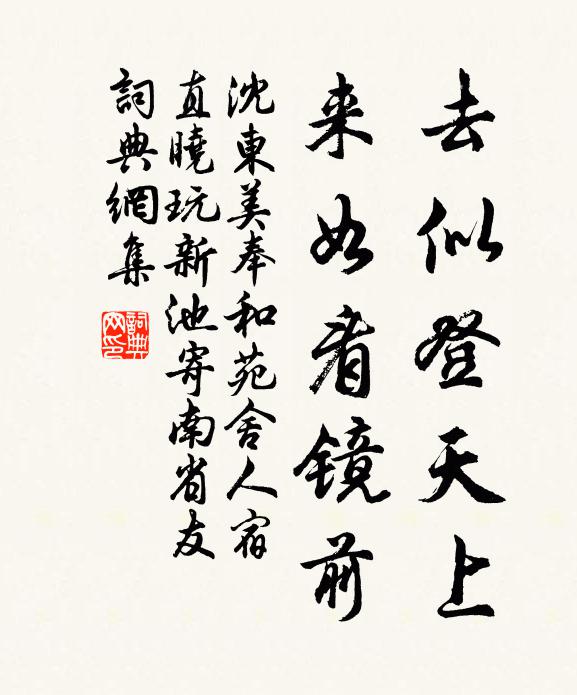 去似登天上
来如看镜前
沈東美奉和苑舍人宿
直曉玩新池寄南省友
詞典網集
詞典
网印